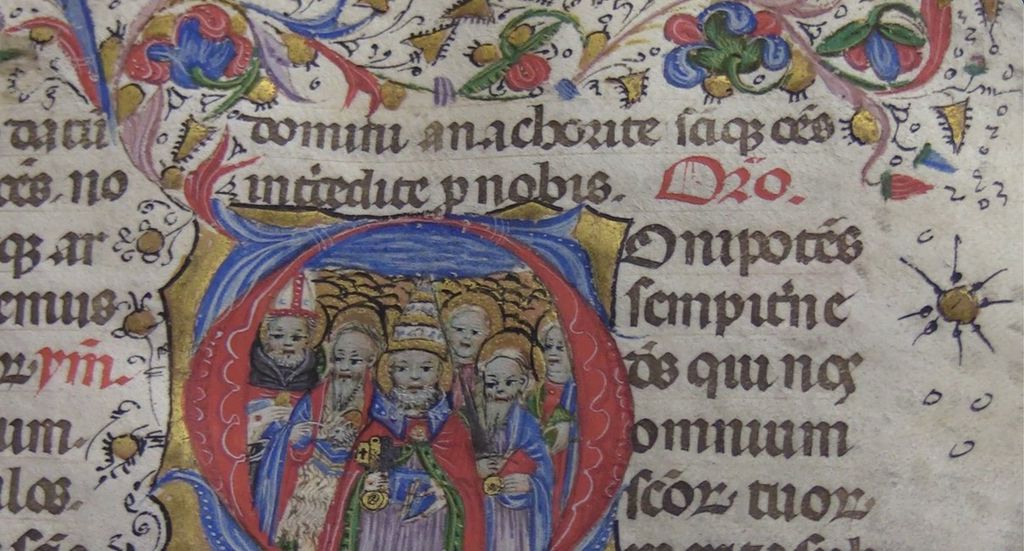 datū
cēs. no
qꝫ ar
emus
or viii.
um.
ulos.
domini anachorite sciqꝫ cēs
intcedite ꝑ nobis. Orō.
Onipotēs
sempitne
ds qui nos
omnium
scōr tuor